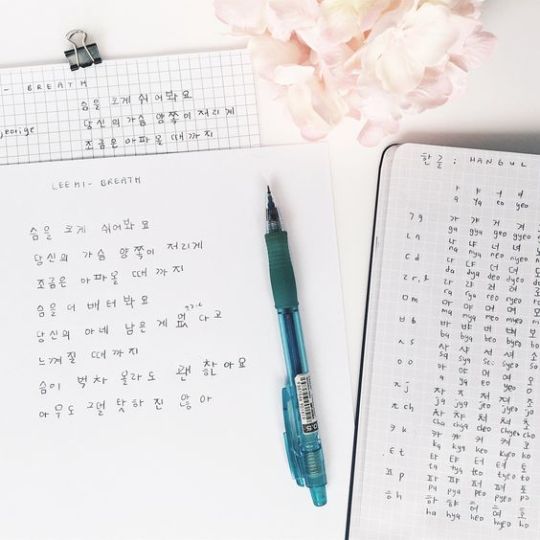 - BREATH
숨을 크게 쉬어봐요
jeorige 당신의 가슴 양쪽이 저리게
조금은 아파올 때까지
LEEHI- BREATH
숨을 크게 쉬어봐요
당신의 가슴 양쪽이 저리게
조금은 아파올 때 까지
숨을 더 배터 봐요
당신의 아네 남은게 없다고
느껴질 때까지
숨이 벅차 올라도 괜찮아요
아무도 그댈 탓하진 않아
0.5
한글 : HANGUL
ㅏ ㅑ ㅓ ㅕ
a ya eo yeo
ㄱg 가 갸 거 겨
ga gya geo gyeo
ㄴn 나 냐 너 녀
na nya neo nyeo
ㄷd 다 댜 더 뎌
da dya deo dyeo
ㄹr,l 라 랴 러 려
ra rya reo ryeo
ㅁm 마 먀 머 며
ma mya meo myeo
ㅂb 바 뱌 버 벼
ba bya beo byeo
ㅅs 사 샤 서 셔 소
sa sya seo syeo so
ㅇo 아 야 어 여 오
a ya eo yeo o
ㅈj 자 쟈 저 져 조
ja jya jeo jyeo jo
ㅊch 차 챠 처 쳐 초
cha chya cheo chyeo cho
ㅋk 카 캬 커 켜 코
ka kya keo kyeo ko
ㅌt 타 탸 터 텨 토
ta tya teo tyeo to
ㅍp 파 퍄 퍼 펴 포
pa pya peo pyeo po
ㅎh 하 햐 허 혀 호
ha hya heo hyeo ho